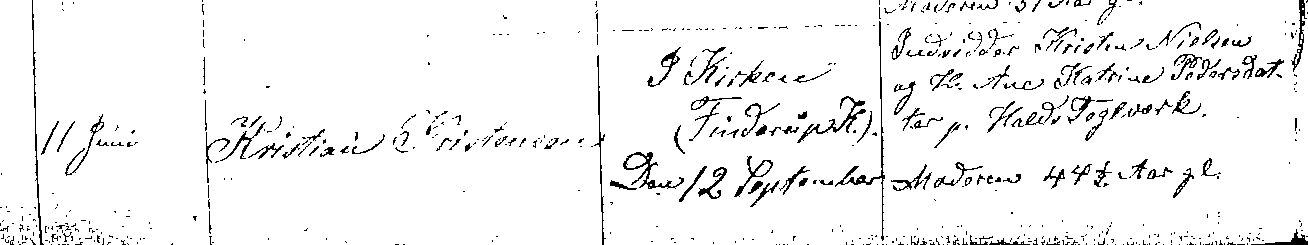 Moderen 31 Aar gl.
11 Juni
Kristian Kristensen
I Kirken
(Finderup K.).
Den 12 September
Indsidder Kristen Nielsen
og H. Ane Katrine Pedersdat-
ter p. Halds Teglværk.
Moderen 44½ Aar gl.